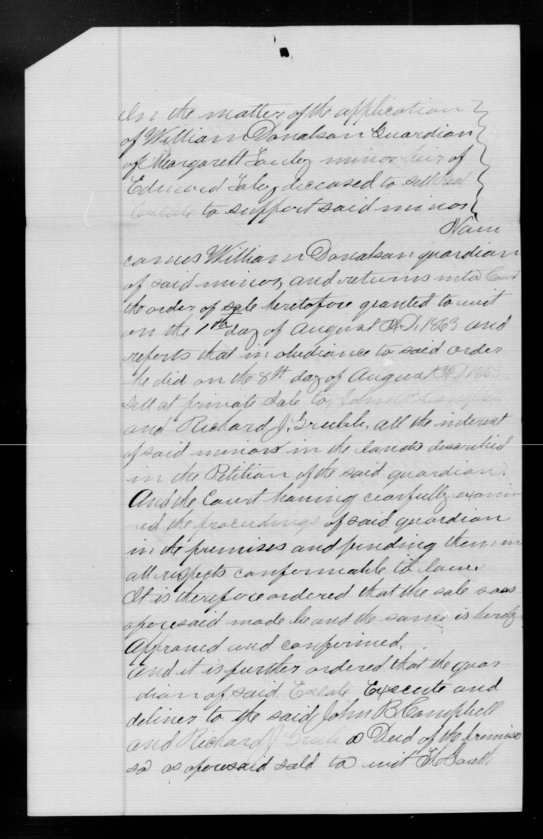 In the matter of the application
of William Donalson Guardian
of Margarett minor heir of
Edward Foley deceased to sell Real
Estate to support said minor
Now
comes William Donalson guardian
of said minor, and returns into Court
the order of sale heretofore granted to wit
on the 1st day of August A.D. 1863 and
reports that in obediance to said order
he did on the 8th day of August A.D. 1863
sell at private sale to John B Campbell
and Richard J. Grubb. all the interest
of said minors in the lands described
in the Petition of the said guardian.
And the Court having carfully examin
ed the proceedings of said guardian
in the premises and finding them in
all respects conformable to law
It is therefore ordered that the sale so as
aforesaid made be and the same is hereby
Approved and confirmed.
And it is further ordered that the guar
dian of said Estate Execute and
deliver to the said John B. Campbell
and Richard J Grubb a Deed of the premises
so as aforesaid sold to wit South